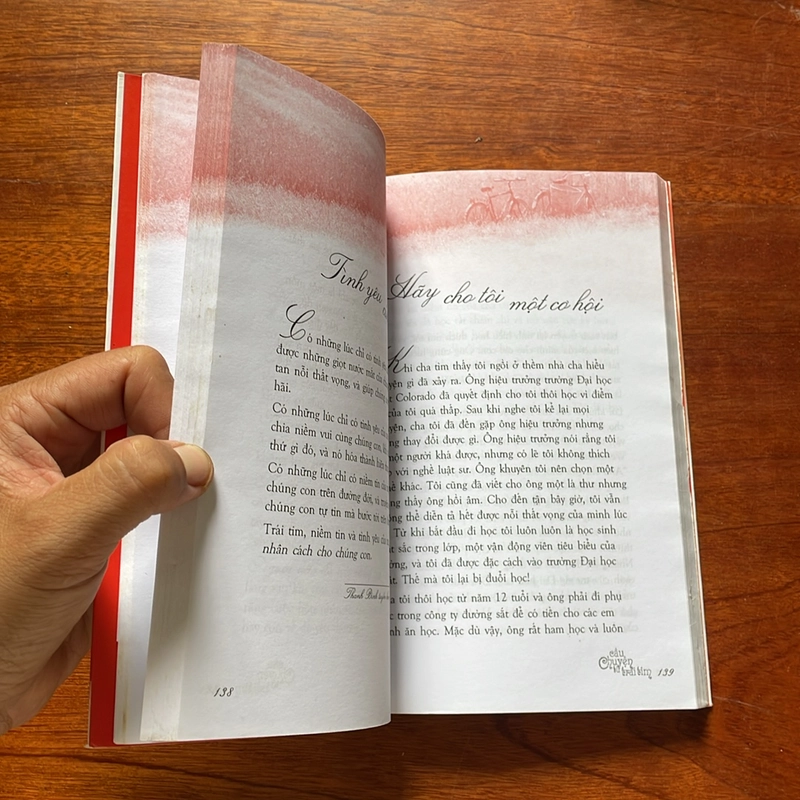 Tình yêu
Có những lúc chỉ có tình
được những giọt nước mắt
tan nỗi thất vọng, và giúp
hãi.
Có những lúc chỉ có tình yêu
chia niềm vui cùng chúng con,
thứ gì đó, và nó hóa thành
Có những lúc chỉ có niềm tin
chúng con trên đường đời, và
chúng con tự tin mà bước
Trái tim, niềm tin và tình yêu
nhân cách cho chúng con.
Thanh Bình
138
Hãy cho tôi một cơ hội
Khi cha tìm thấy tôi ngồi ở thềm nhà cha hiểu
gì đã xảy ra. Ông hiệu trưởng trường Đại học
Colorado đã quyết định cho tôi thôi học vì điểm
của tôi quá thấp. Sau khi nghe tôi kể lại mọi
cha tôi đã đến gặp ông hiệu trưởng nhưng
thay đổi được gì. Ông hiệu trưởng nói rằng tôi
một người khá được, nhưng có lẽ tôi không thích
với nghề luật sư. Ông khuyên tôi nên chọn một
khác. Tôi cũng đã viết cho ông một lá thư nhưng
thấy ông hồi âm. Cho đến tận bây giờ, tôi vẫn
thể diễn tả hết được nỗi thất vọng của mình lúc
Từ khi bắt đầu đi học tôi luôn luôn là học sinh
sắc trong lớp, một vận động viên tiêu biểu của
và tôi đã được đặc cách vào trường Đại học
Thế mà tôi lại bị đuổi học!
tôi thôi học từ năm 12 tuổi và ông phải đi phụ
trong công ty đường sắt để có tiền cho các em
ăn học. Mặc dù vậy, ông rất ham học và luôn
câu
Chuyện
trái tim
139